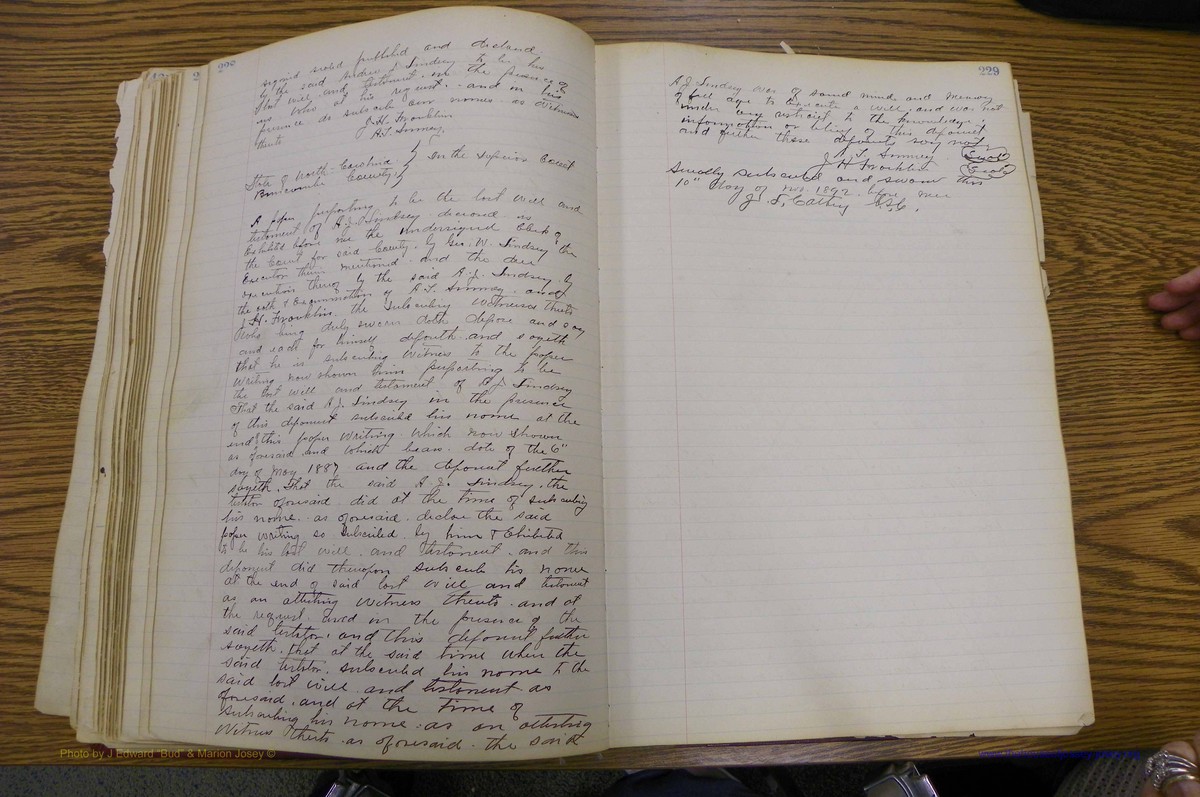 228
signed seald published and declared
by the said Andrew J Lindsey to be his
last will and testament in the presence of
us who at his request and in his
presence do subscribe our names as witnesses
thereto
J.H. Franklin
A.T. Summey
State of North-Carolina } In the Superior Court
Buncombe County }
A paper purporting to be the last will and
testament of A.J. Lindsey deceased is
Exhibited before me the undersigned Clerk of
the Court for said County by Geo. W. Lindsey the
Executor therein mentioned and the due
execution thereof by the said A.J. Lindsey by
the oath & Examination of A.T. Summey and
J.H. Franklin the subscribing witnesses thereto
Who being duly sworn doth depose and say
and each for himself deposeth and sayeth
that he is subscribing witness to the paper
writing now shown him purporting to be
the last will and testament of A.J. Lindsey
That the said A.J. Lindsey in the presence
of this deponent subscribed his name at the
end this paper writing which now shown
as aforesaid and which bears date of the 6"
day of May 1887 and the deponent further
sayeth That the said A.J. Lindsey the
testator aforesaid did at the time of subscribing
his name as aforesaid declare the said
paper writing so subscribed by him & Exhibited
to be his last will and testament and this
deponent did thereupon subscribe his name
at the end of said last will and testament
as an attesting witness thereto and at
the request and in the presence of the
said testator and this deponent further
sayeth that at the said time when the
said testator subscribed his name to the
said last will and testament as
aforesaid and at the time of
subscribing his name as an attesting
witness thereto as aforesaid the said
229
A.J. Lindsey was of sound mind and memory
of full age to execute a will and was not
under any restraint to the knowledge
information or belief of this deponent
and further these deponents say not
A.T. Summey (Seal)
J H Franklin (Seal)
Severally subscribed and sworn this
10" day of Nov. 1892 before me
J.T. Cathey C.S.C.
Photo by J Edward "Bud" & Marion Josey ©